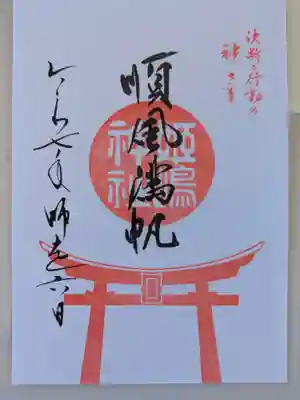 決断と行動の
神さま
順風満帆
令和七年師走六日